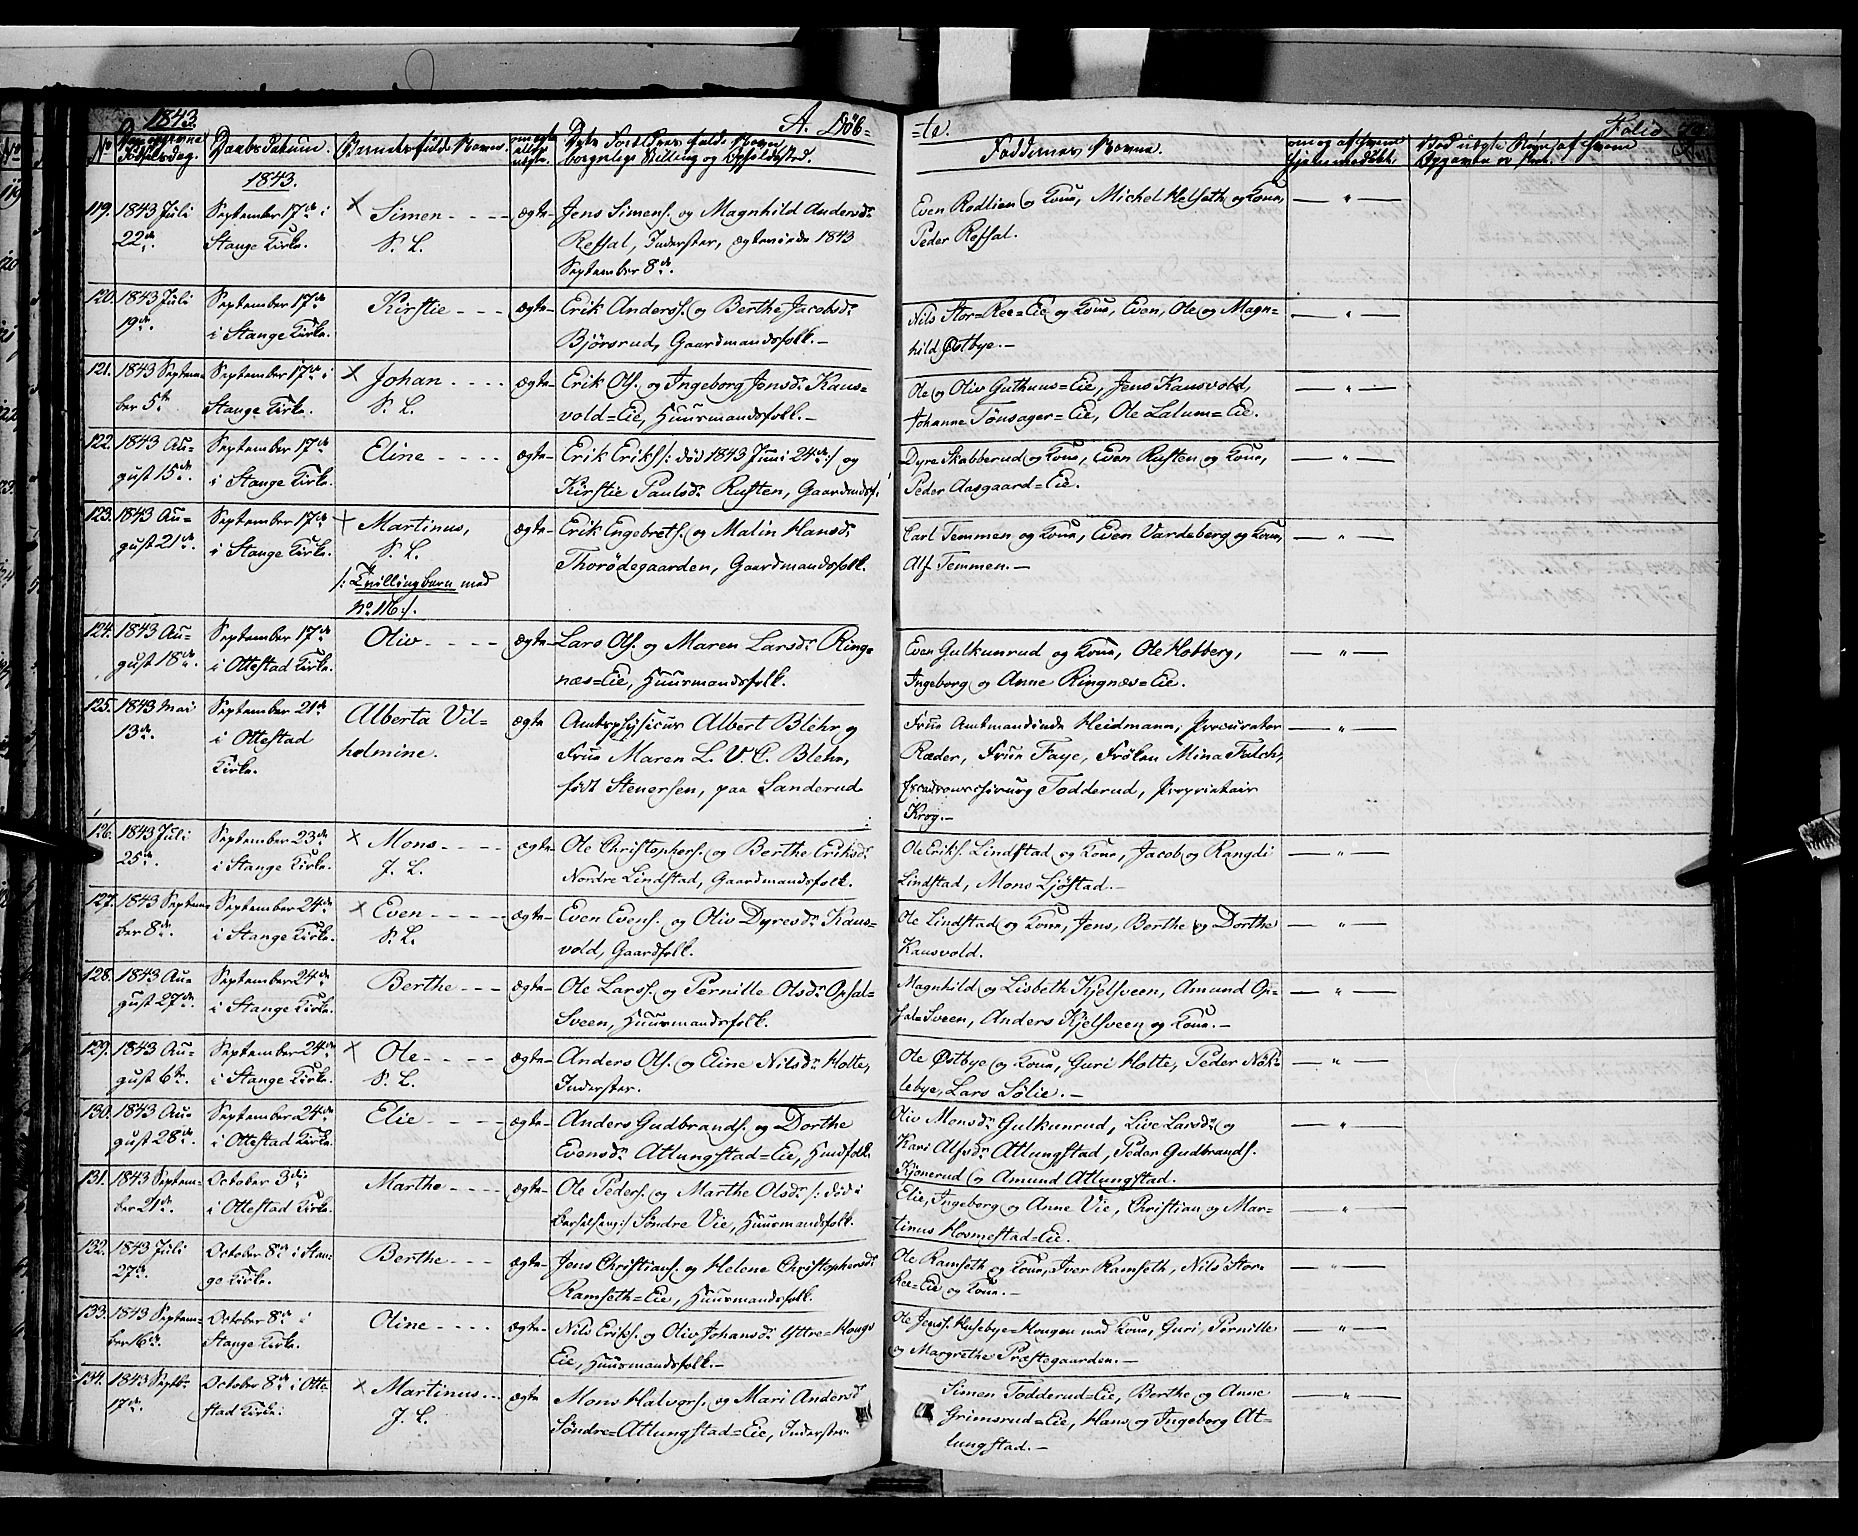 1843.
A. Døb=
=te.
Folio
No
Daabs Datum.
Barnets fulde Navn.
Faddernes Navne.
1843.
119. 1843 Juli 22de. September 17de i Stange Kirke. × Simen S. L. ægte Jens Simens. og Magnhild Andersdr
Refsal, Inderster, ægteviede 1843
September 8de.
Even Rodlien og Kone, Michel Helseth og Kone,
Peder Refsal. — " —
120. 1843 Juli 19de. September 17de i Stange Kirke. Kirstie ægte Erik Anderss. og Berthe Jacobsdr
Bjørsrud, Gaardmandsfolk.
Nils Stor=Ree=Eie og Kone, Even, Ole og Magn=
hild Østbye. — " —
121. 1843 September 5te. September 17de i Stange Kirke. × Johan S. L. ægte Erik Ols. og Ingeborg Jensdr Kaus=
vold=Eie, Huusmandsfolk.
Ole og Oliv Guthuus=Eie, Jens Kausvold,
Johanne Tønsager=Eie, Ole Lalum=Eie. — " —
122. 1843 August 15de. September 17de i Stange Kirke. Eline ægte Erik Eriks /: død 1843 Juni 24de :/ og
Kirstie Paulsdr Rusten, Gaardmandsf.
Dyre Skabberud og Kone, Even Rusten og Kone,
Peder Aasgaard=Eie. — " —
123. 1843 August 21de. September 17de i Stange Kirke. × Martinus, S. L.
/: Tvillingbarn med
No 116 :/.
ægte Erik Engebrets. og Malin Hansdr
Thorødegaarden, Gaardmandsfolk.
Carl Temmen og Kone, Even Vardeberg og Kone,
Alf Temmen. — " —
124. 1843 August 18de. September 17de i Ottestad Kirke. Oliv ægte Lars Ols. og Maren Larsdr Ring=
næs=Eie, Huusmandsfolk.
Even Gulkunrud og Kone, Ole Hobberg,
Ingeborg og Anne Ringnæs=Eie. — " —
125. 1843 Mai 13de. September 21de i Ottestad Kirke. Alberta Vil=
helmine. ægte Amtsphysicus Albert Blehr og
Frue Maren L. V. C. Blehr,
født Stenersen, paa Sanderud
Frue Amtmandinde Heidmann, Procurator
Ræder, Frue Faye, Frøken Mina Falch,
Escadronschirurg Todderud, Proprietair
Krog. — " —
126. 1843 Juli 25de. September 23de i Stange Kirke. × Mons J. L. ægte Ole Christophers. og Berthe Eriksdr
Nordre Lindstad, Gaardmandsfolk.
Ole Eriks. Lindstad og Kone, Jacob og Rangdi
Lindstad, Mons Ljøstad. — " —
127. 1843 September 8de. September 24de i Stange Kirke. × Even S. L. ægte Even Evens. og Oliv Dyresdr Kaus=
vold, Gaardfolk.
Ole Lindstad og Kone, Jens, Berthe og Dorthe
Kausvold. — " —
128. 1843 August 27de. September 24de i Stange Kirke. Berthe ægte Ole Larss. og Pernille Olsdr Opsal=
Sveen, Huusmandsfolk.
Magnhild og Lisbeth Kjelsveen, Amund Op=
sal=Sveen, Anders Kjelsveen og Kone. — " —
129. 1843 August 6te. September 24de i Stange Kirke. × Ole S. L. ægte Anders Ols. og Eline Nilsdr Holte,
Inderster.
Ole Østbye og Kone, Guri Holte, Peder Nøk=
lebye, Lars Sølie. — " —
130. 1843 August 28de. September 24de i Ottestad Kirke. Elie ægte Anders Gudbrands. og Dorthe
Evensdr Atlungstad=Eie, Huusfolk.
Oliv Monsdr Gulkunrud, Live Larsdr og
Kari Alfsdr Atlungstad, Peder Gudbrands.
Kjønerud og Amund Atlungstad. — " —
131. 1843 September 21de. October 3die i Ottestad Kirke. Marthe ægte Ole Peders. og Marthe Olsdr /: død i
Barselseng :/ Søndre Vie, Huusmandsfolk.
Elie, Ingeborg og Anne Vie, Christian og Mar=
tinus Hovmestad=Eie. — " —
132. 1843 Juli 27de. October 8de i Stange Kirke. Berthe ægte Jens Christians. og Helene Christophersdr
Ramseth=Eie, Huusmandsfolk.
Ole Ramseth og Kone, Iver Ramseth, Nils Stor=
Ree=Eie og Kone. — " —
133. 1843 September 16de. October 8de i Stange Kirke. Oline ægte Nils Erikss. og Oliv Johansdr Yttre=Houge
Eie, Huusmandsfolk.
Ole Jenss. Husebye=Hougen med Kone, Guri, Pernille
og Margrethe Præstegaarden. — " —
134. 1843 Septbr 17de. October 8de i Ottestad Kirke. × Martinus J. L. ægte Mons Halvors. og Mari Andersd
Søndre=Atlungstad=Eie, Inderster.
Simen Todderud=Eie, Berthe og Anne
Grimsrud=Eie, Hans og Ingeborg At=
lungstad. — " —